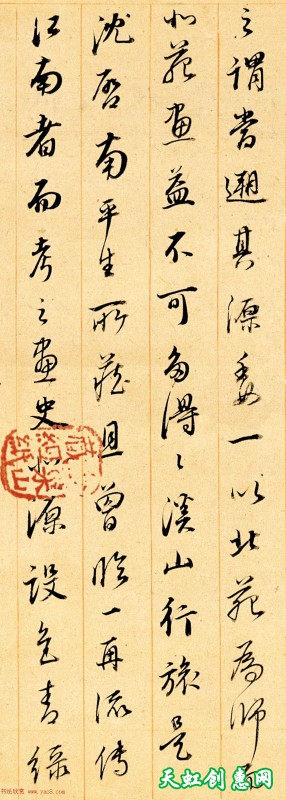 之謂嘗遡其源委一以北苑為師而
北苑畫益不可多得〻溪山行旅是
沈啓南平生所藏且曾臨一再流傳
江南者而考之畫史北源設色青綠
书法欣赏 www.yac8.com
天虹创意网